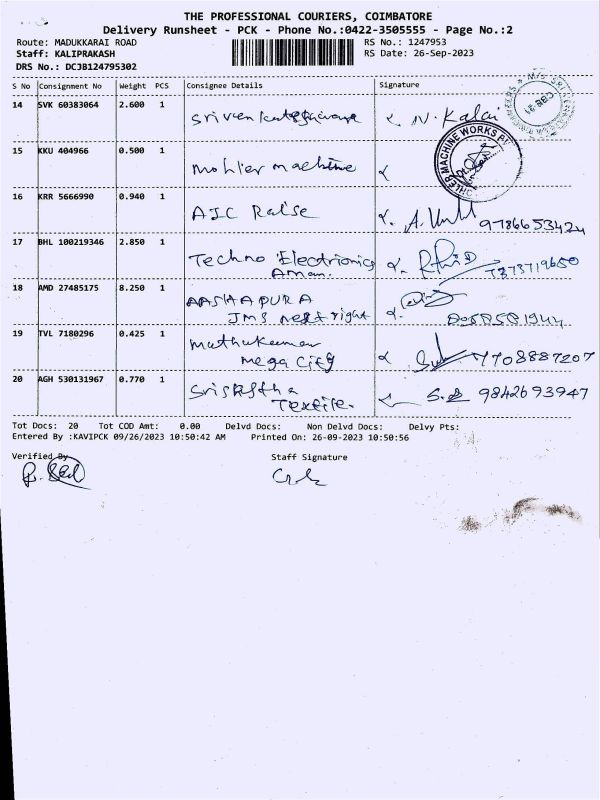 THE PROFESSIONAL COURIERS, COIMBATORE
Delivery Runsheet - PCK - Phone No.:0422-3505555 - Page No.:2
Route: MADUKKARAI ROAD RS No.: 1247953
Staff: KALIPRAKASH RS Date: 26-Sep-2023
DRS No.: DCJB124795302
S No Consignment No Weight PCS Consignee Details Signature
14 SVK 60383064 2.600 1 N. Kalai
15 KKU 404966 0.500 1 Mohler machine
MACHINE WORKS
16 KRR 5666990 0.940 1 AIC Raise
9786653424
17 BHL 100219346 2.850 1 Techno Electrionics
Aman. 7373719660
18 AMD 27485175 8.250 1 AASHAPURA
JMS next right
19 TVL 7180296 0.425 1 Muthukumar
mega City 7708887207
20 AGH 530131967 0.770 1
Textile. 9842693947
Tot Docs: 20 Tot COD Amt: 0.00 Delvd Docs: Non Delvd Docs: Delvy Pts:
Entered By :KAVIPCK 09/26/2023 10:50:42 AM Printed On: 26-09-2023 10:50:56
Verified By Staff Signature